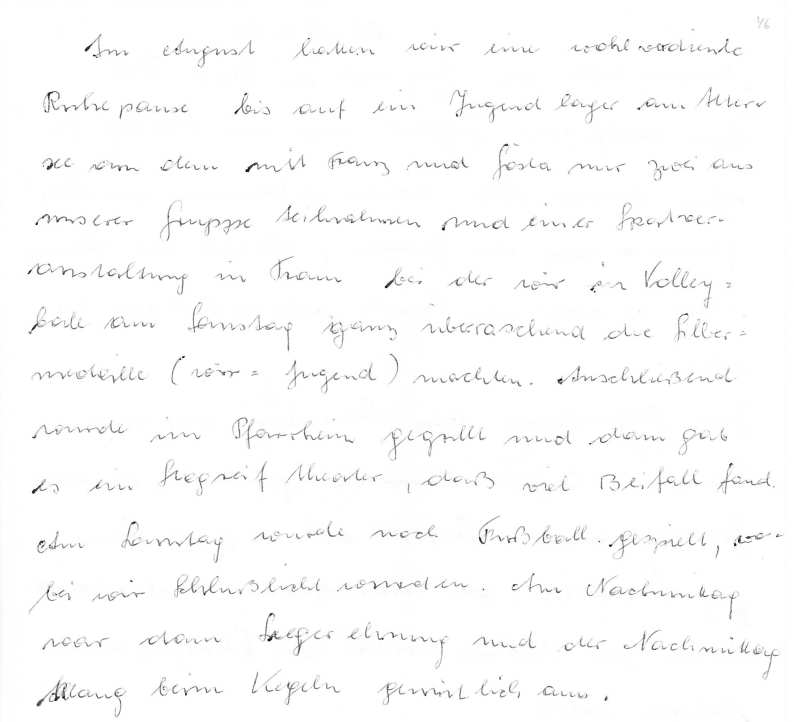 46
Im August hatten wir eine wohlverdiente
Ruhepause bis auf ein Jugendlager am Atter-
see an dem mit Franz und Gösta nur zwei aus
unserer Gruppe teilnahmen und einer Sportver-
anstaltung in Traun bei der wir in Volley=
ball am Samstag ganz überaschend die Silber=
medaille (wir = Jugend) machten. Anschließend
wurde im Pfarrheim gegrillt und dann gab
es ein Stegreif theater, daß viel Beifall fand.
Am Samstag wurde noch Fußball gespielt, wo-
bei wir Schlußlicht wurden. Am Nachmittag
war dann Siegerehrung und der Nachmittag
klang beim Kegeln gemütlich aus.